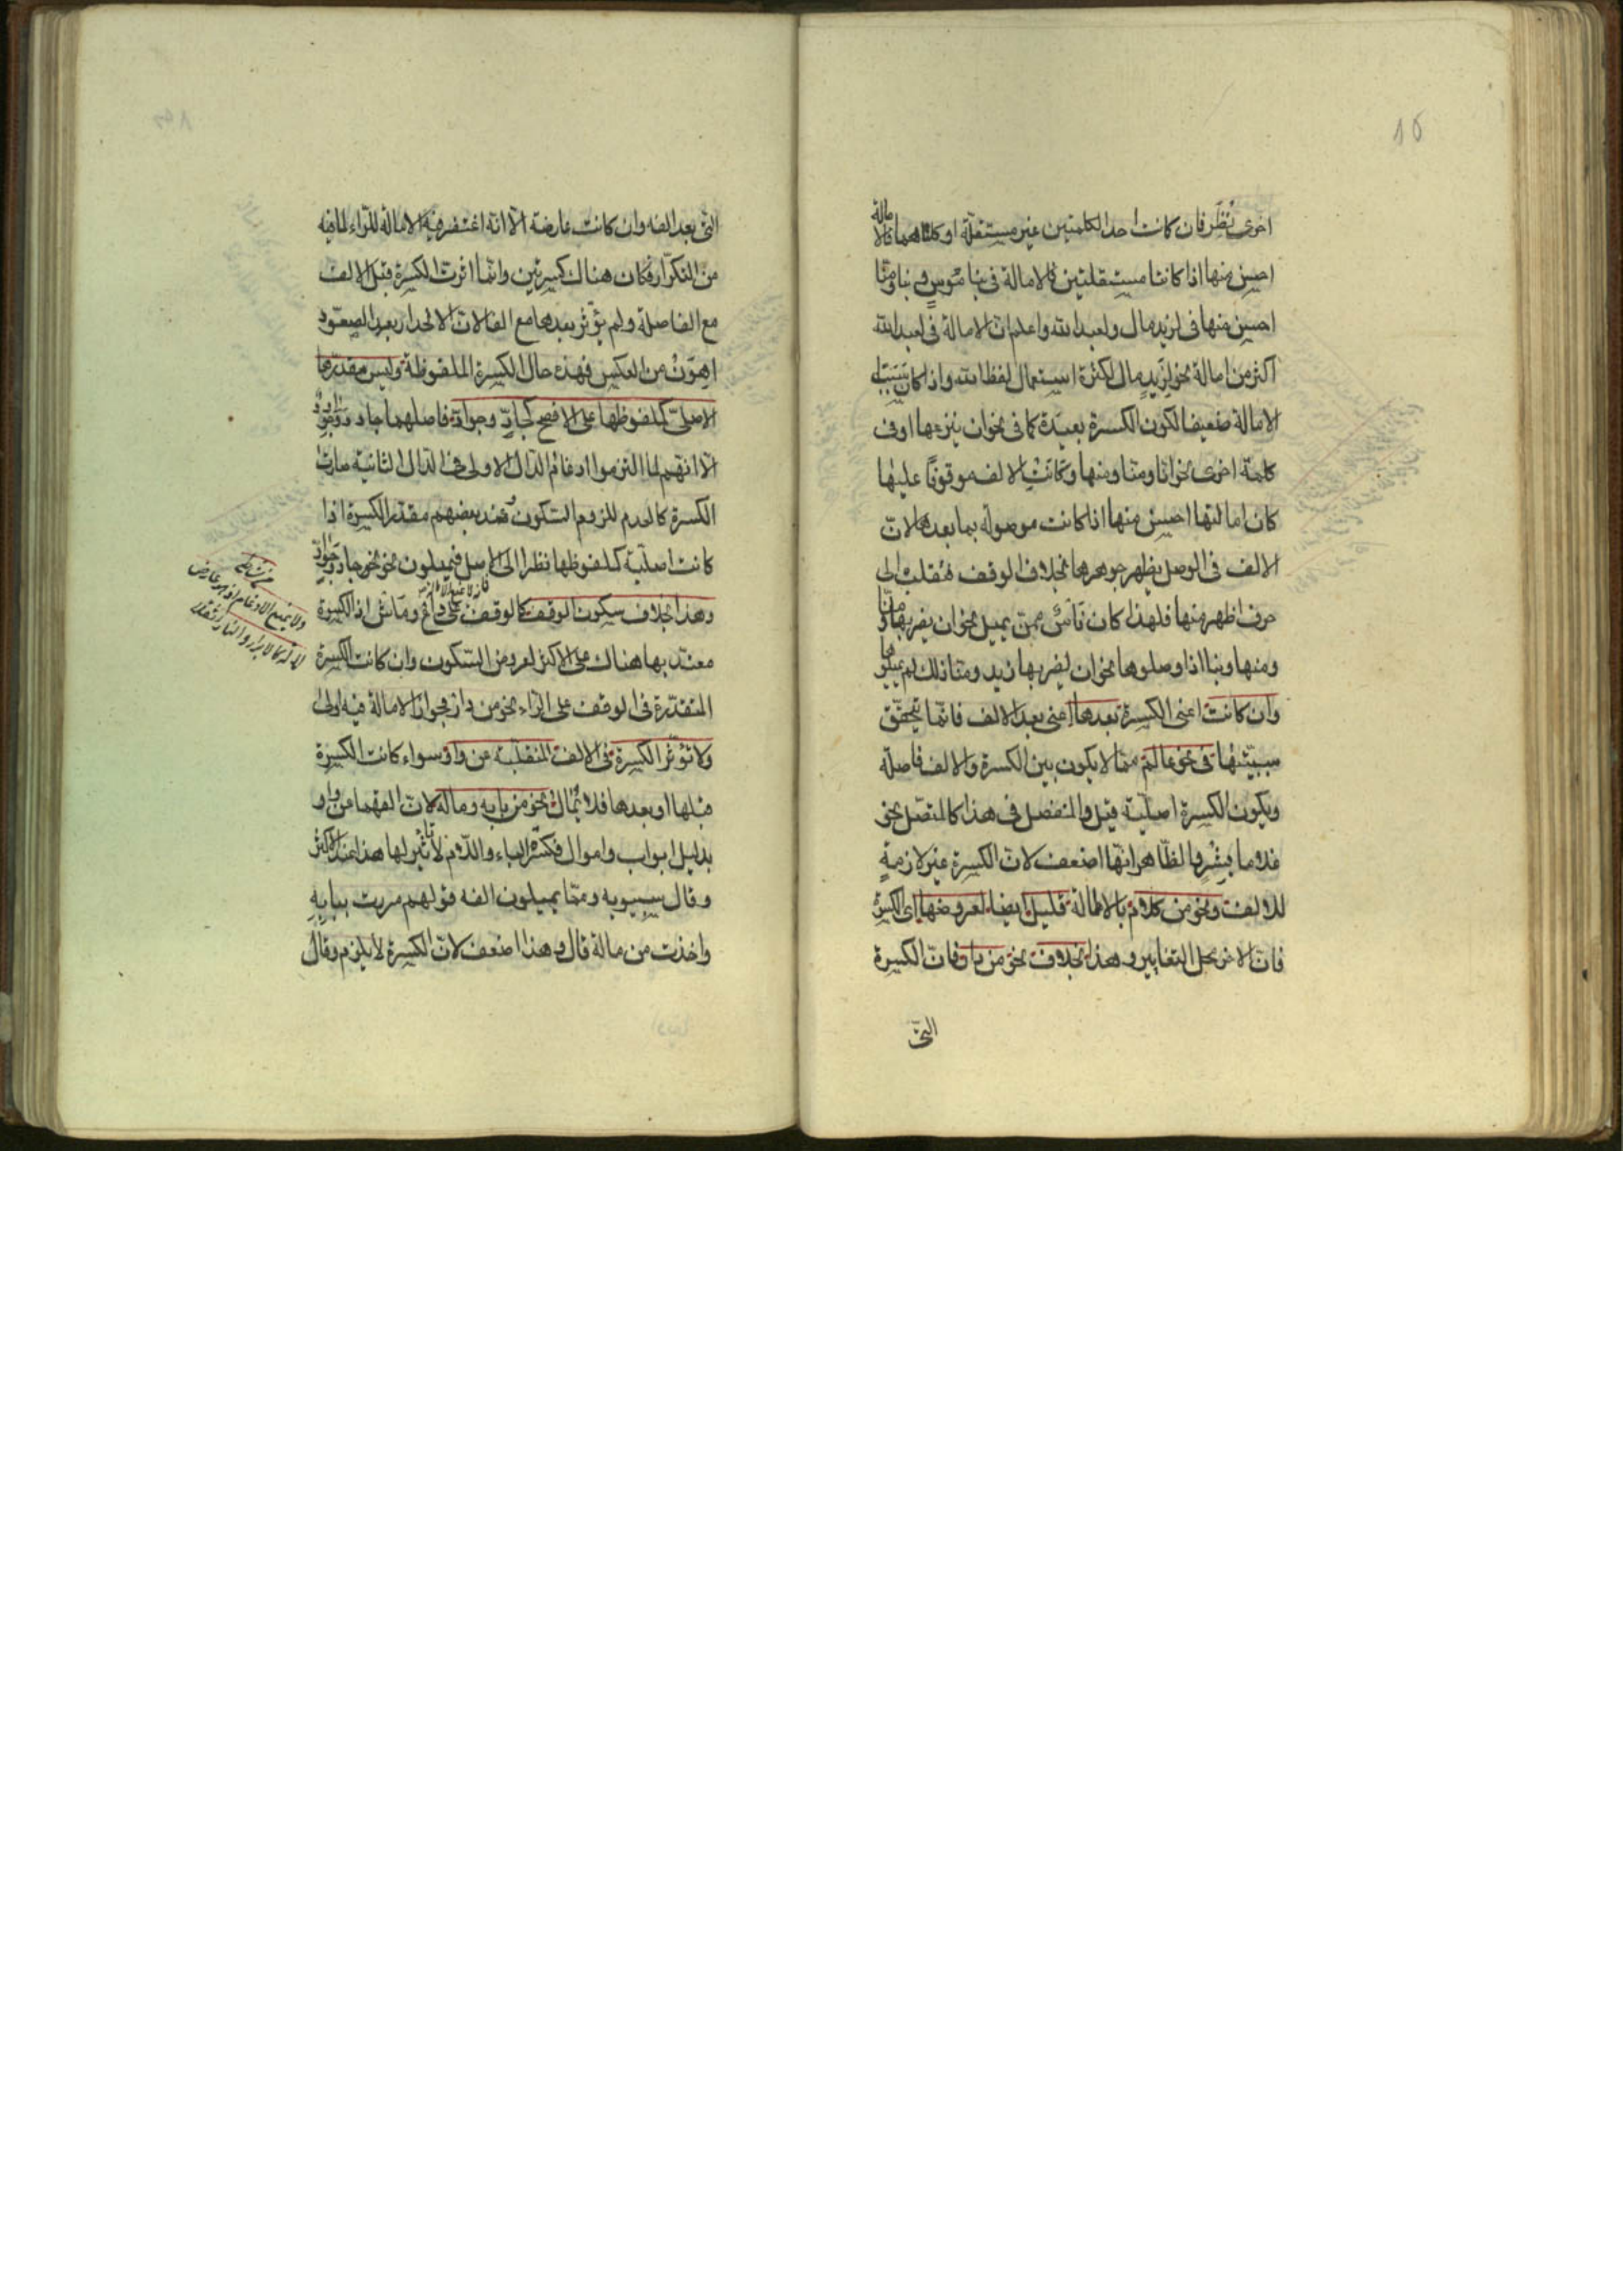 اخرى نُظِر فان كانت احد الكلمتين غير مستقلة او كلتاهما فالامالة
احسن منها اذا كانتا مستقلتين فالامالة فى بنا مُوسٍ فى بنا ومنا
احسن منها فى لزيد مال ولعبد الله واعلم ان الامالة فى لعبد الله
اكثر من امالة نحو لزيدٍ مال لكثرة استعمال لفظ الله واذا كان سبب
الامالة ضعيفا لكون الكسرة بعيدة كما فى نحو ان ينزعها او فى
كلمة اخرى نحو انا ومنا ومنها وكانت الالف موقوفًا عليها
كان امالتها احسن منها اذا كانت موصولة بما بعدها لان
الالف فى الوصل يظهر جوهرها بخلاف الوقف فتقلب الى
حرف اظهر منها فلهذا كان ناسٌ ممن يميل نحو ان يضربها ومنا
ومنها وبنا اذا وصلوها نحو ان يضربها زيد ومنا ذلك لم يميلوها
وان كانت اعنى الكسرة بعدها اعنى بعد الالف فانما تتحقق
سببيتها فى نحو عالم مما لا يكون بين الكسرة والالف فاصلة
ويكون الكسرة اصلية قيل والمنفصل فى هذا كالمتصل نحو
غلاما بِشْرٍ والظاهر انها اضعف لان الكسرة غير لازمةٍ
للالف ونحو من كلامٍ بالامالة قليل ايضا لعروضها اى الكسرة
فان الاخر محل التغايير وهذا بخلاف نحو من دار فان الكسرة
التى
التى بعد الفه وان كانت عارضة الا انه اغتفر فيه الامالة للراء لما فيه
من التكرار فكان هناك كسرتين وانما اثرت الكسرة قبل الالف
مع الفاصلة ولم يؤثر بعدها مع الفا لان الانحدار بعد الصعود
اهونُ من العكس فهذه حال الكسرة الملفوظة وليس مقدرها
الاصلىّ كملفوظها على الافصح كجادّ وجوادّ فاصلهما جادد وجوادد
الا انهم لما التزموا ادغام الدال الاولى فى الدال الثانية صارت
الكسرة كالعدم للزوم السكون فعند بعضهم مقدر الكسرة اذا
كانت اصلية كملفوظها نظرا الى الاصل فيميلون نحو نحو جادّ وجوادّ
وهذا بخلاف سكون الوقف كالوقف على داع وماش اذ الكسرة
معتدّ بها هناك على الاكثر لعروض السكون وان كانت الكسرة
المقدرة فى الوقف على الراء نحو من دار فجواز الامالة فيه اولى
ولا تؤثر الكسرة فى الالف المنقلبة عن واو سواء كانت الكسرة
قبلها او بعدها فلا يُمال نحو من بابه وماله لان الفهما من واو
بدليل ابواب واموال فكسرة الباء واللام لا تأثير لها هذا عند الاكثر
وقال سيبويه ومما يميلون الفه قولهم مررت ببابِهِ
واخذت من ماله قال وهذا اضعف لان الكسرة لا يلزم وقال
ولا يمنع الادغام اذ هو عارض